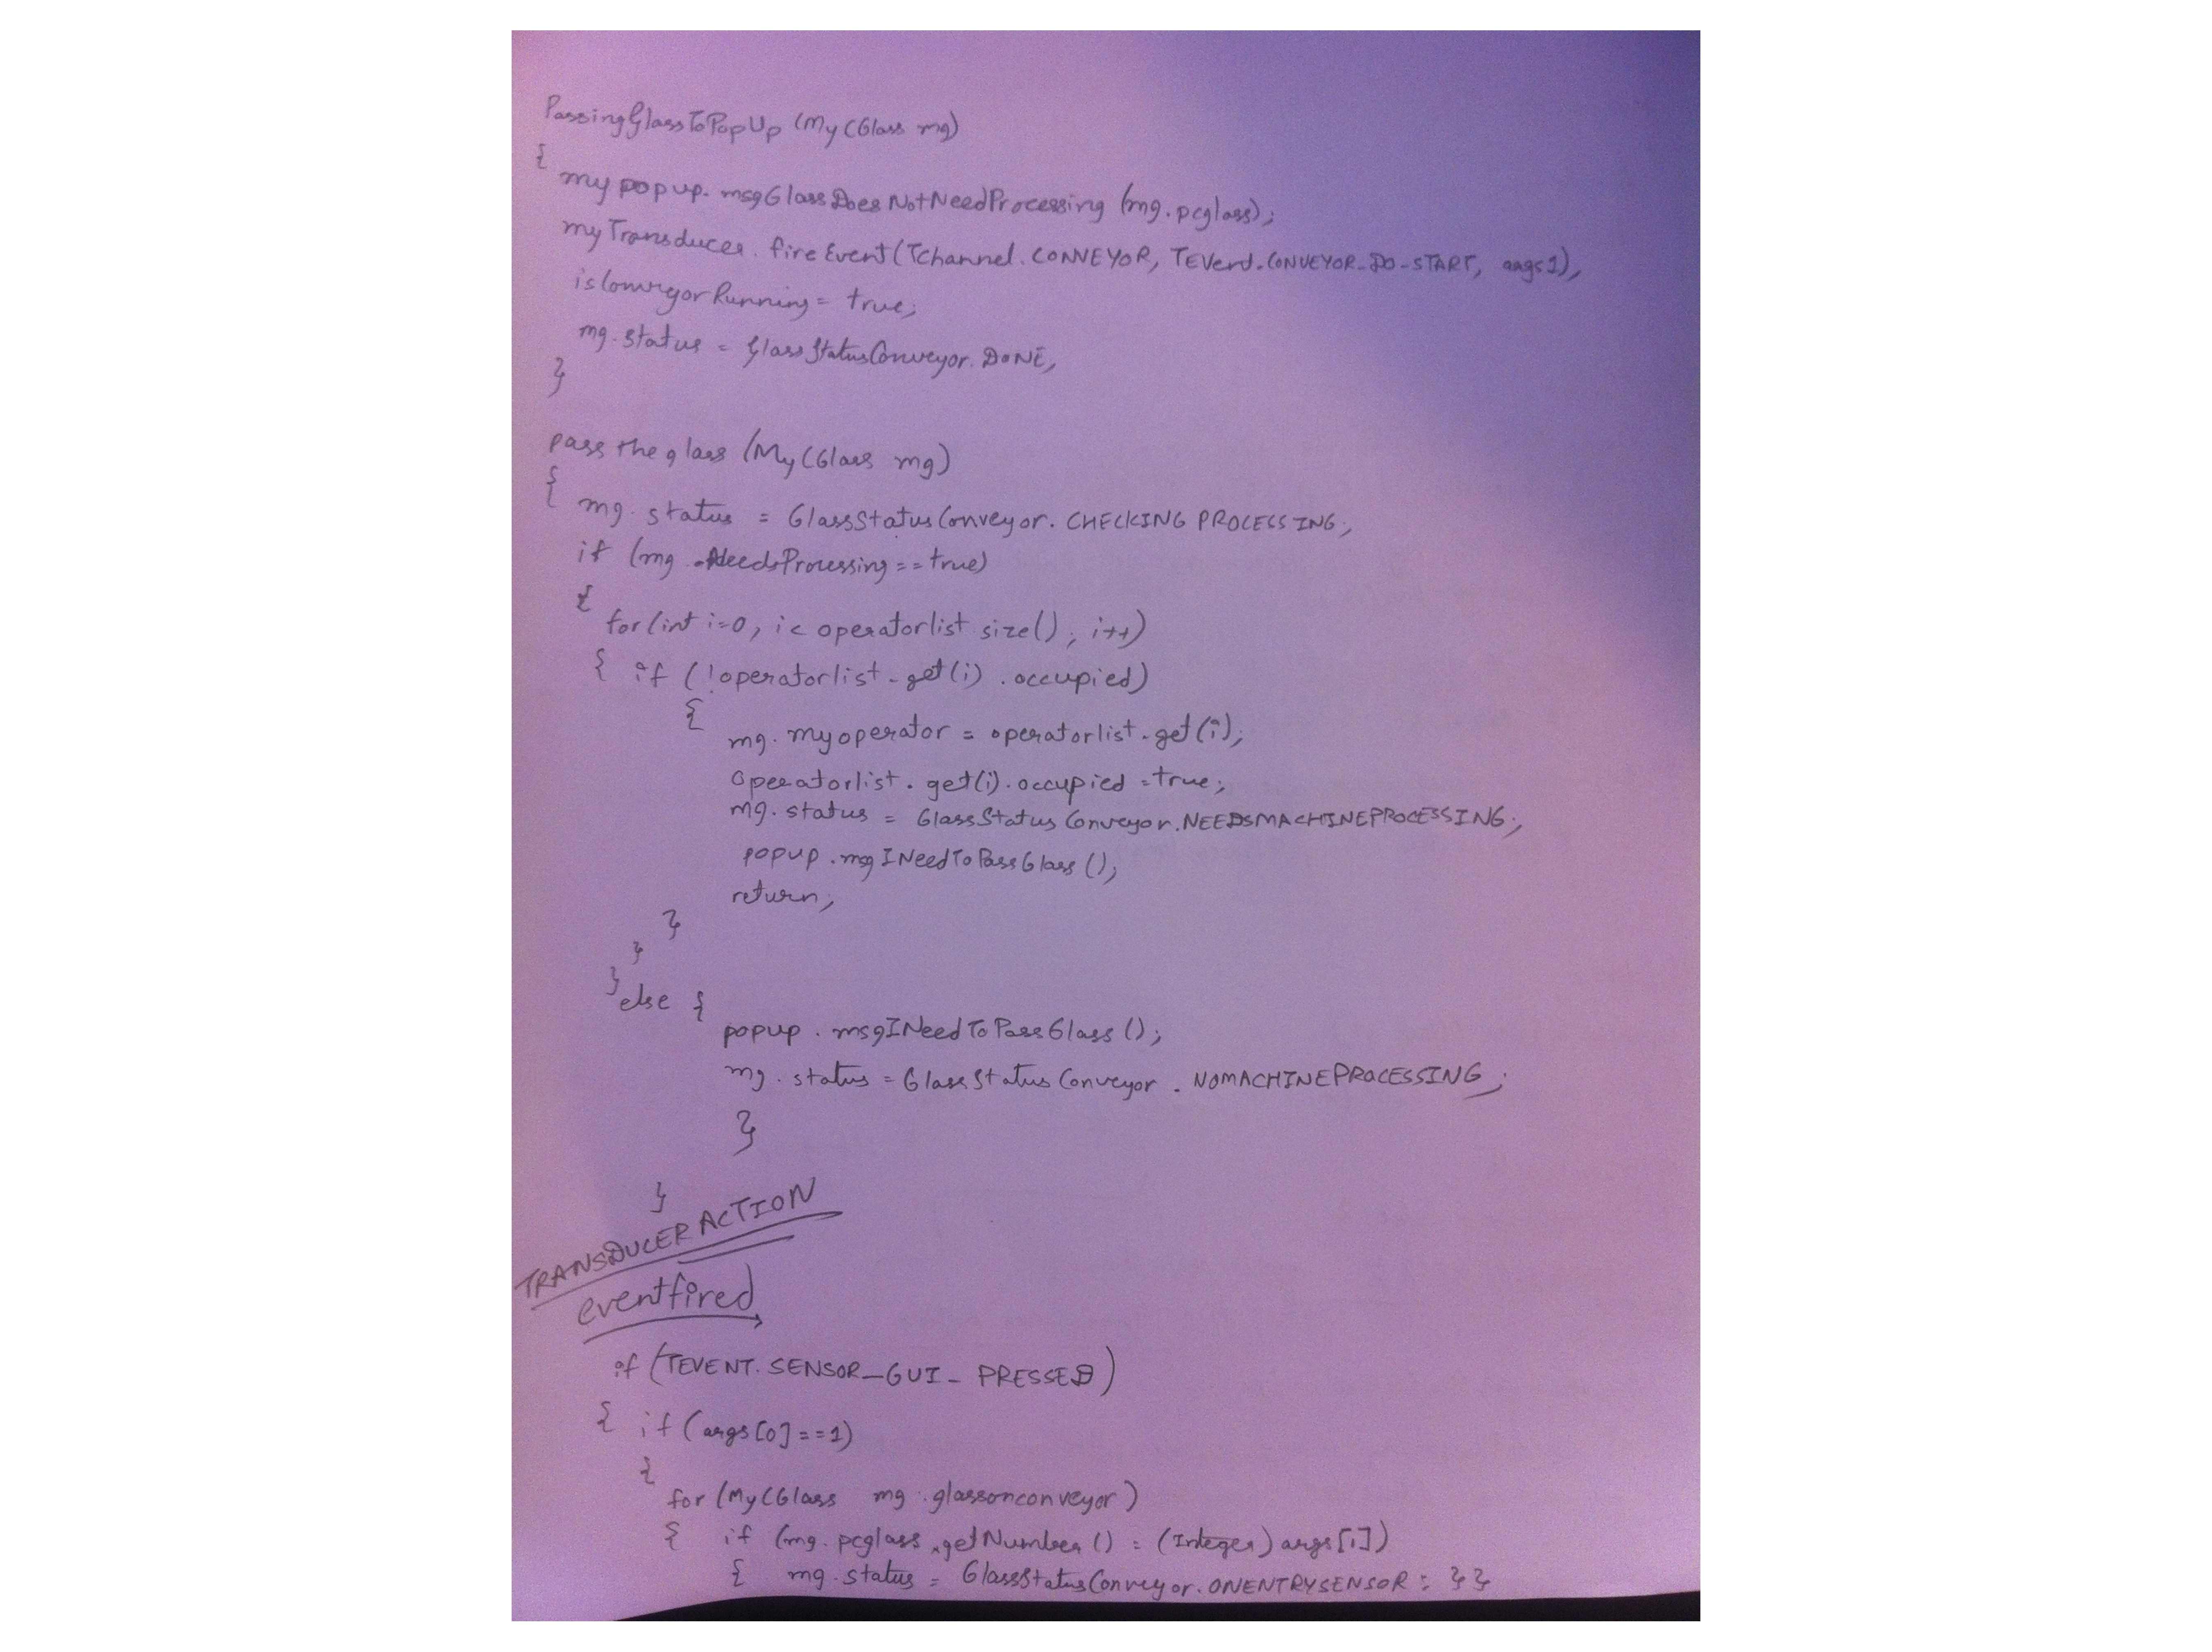 PassingGlassToPopUp (MyCGlass mg)
{
my popup. msgGlassDoesNotNeedProcessing (mg.pcglass);
myTransducer. fireEvent(TChannel.CONVEYOR, TEVent.CONVEYOR_DO-START, args1),
isConveyorRunning = true;
mg.status = GlassStatusConveyor.DONE,
}
pass the glass (MyCGlass mg)
{ mg. status = GlassStatusConveyor. CHECKING PROCESSING;
if (mg .NeedsProcessing == true)
{
for(int i=0, i< operatorlist size(); i++)
{ if (!operatorlist.get(i) .occupied)
{
mg. myoperator = operatorlist.get(i);
Operatorlist. get(i).occupied =true;
mg. status = GlassStatusConveyor.NEEDSMACHINEPROCESSING;
popup.msgINeedToPassGlass();
return;
}
}
}else {
popup . msgINeedToPassGlass();
mg. status = GlassStatusConveyor . NOMACHINEPROCESSING;
}
}
TRANSDUCER ACTION
eventfired
if (TEVENT. SENSOR_GUI_ PRESSED)
{ if (args[0]==1)
{
for (MyCGlass mg : glassonconveyor)
{ if (mg. pcglass.getNumber() = (Integer) args[i])
{ mg.status = GlassStatusConveyor.ONENTRYSENSOR; }}